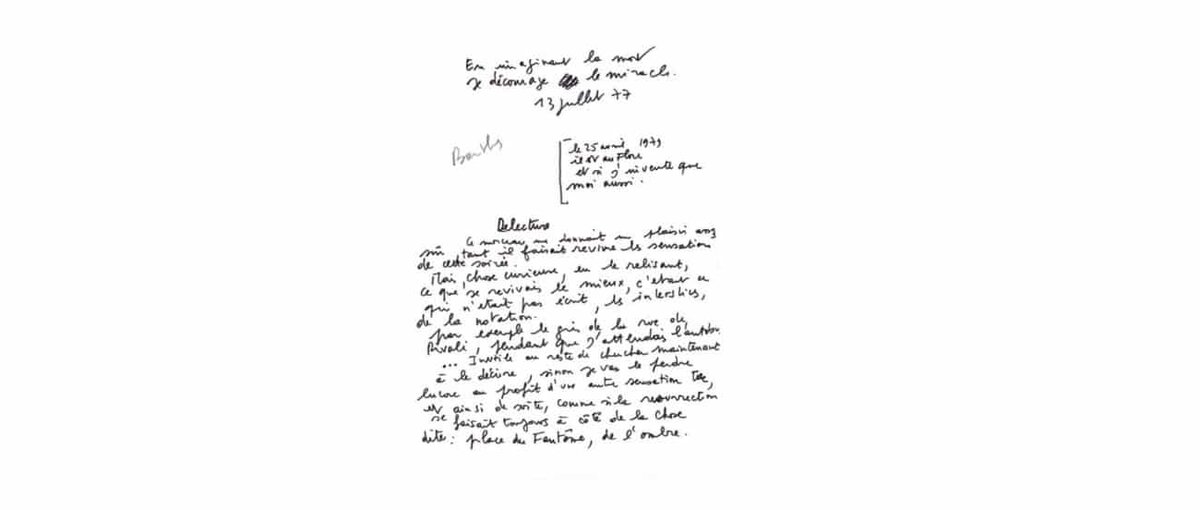 En imaginant la mort
je décourage le miracle.
13 juillet 77
Barthes
le 25 avril 1979
il est au Flore
et si j'invente que
moi aussi.
Relecture
Ce morceau me donnait un plaisir assez
sûr tant il faisait revivre les sensations
de cette soirée.
Mais, chose curieuse, en le relisant,
ce que je revivais le mieux, c'était ce
qui n'était pas écrit, les interstices,
de la notation.
par exemple le gris de la rue de
Rivoli, pendant que j'attendais l'autobus
... Inutile au reste de chercher maintenant
à le décrire, sinon je vais le perdre
encore au profit d'une autre sensation tue,
et ainsi de suite, comme si la résurrection
se faisait toujours à côté de la chose
dite : place du Fantôme, de l'ombre.